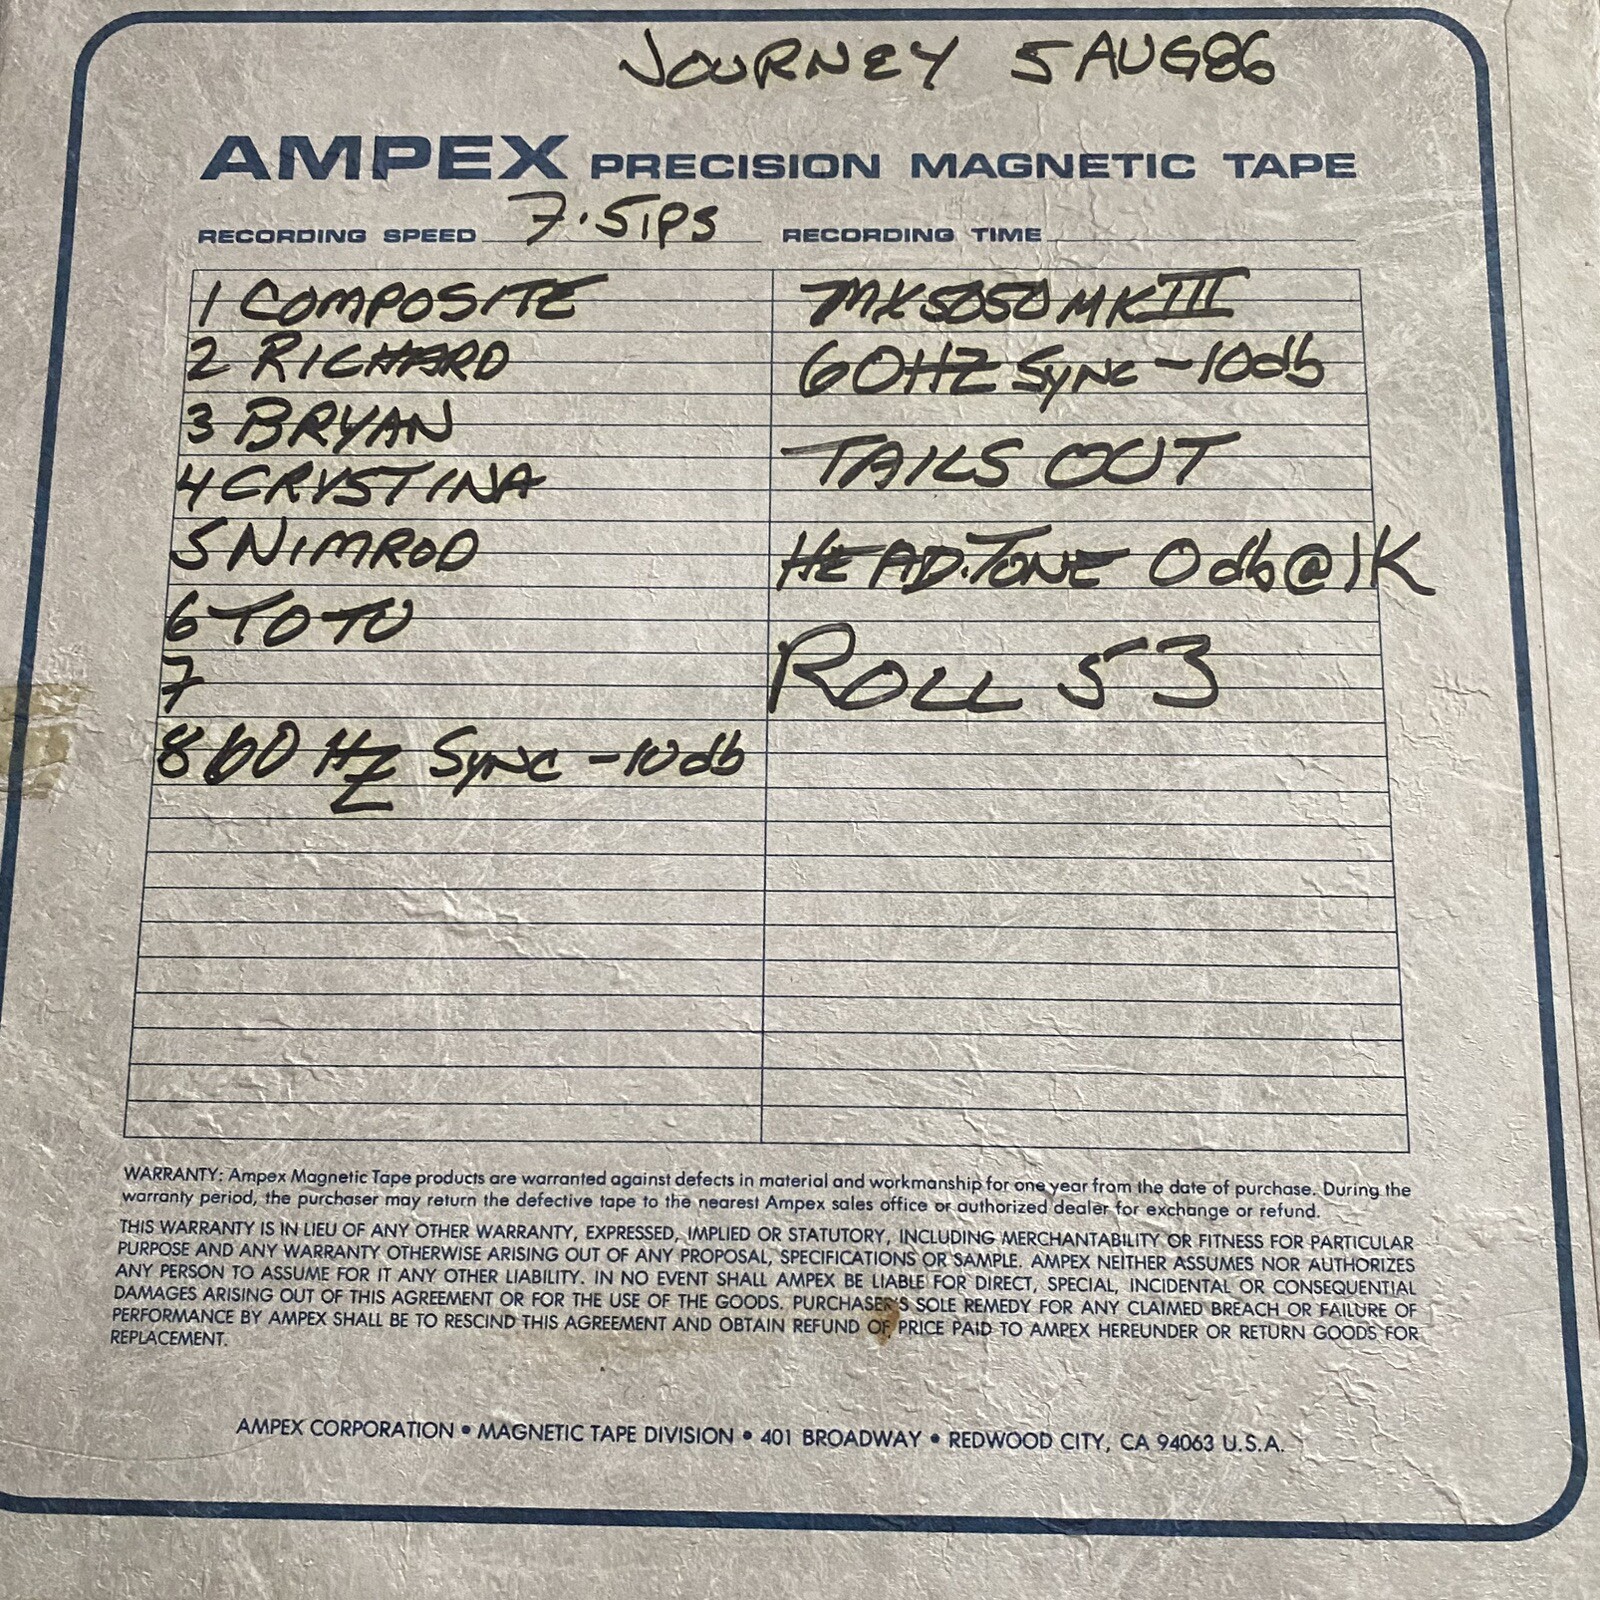 JOURNEY 5 AUG86
AMPEX PRECISION MAGNETIC TAPE
RECORDING SPEED 7.5ips RECORDING TIME
1 COMPOSITE
2 RICHARD
3 BRYAN
4 CRYSTINA
5 NIMROD
6 TOTO
7
8 60 HZ Sync -10db
MX5050MKIII
60HZ Sync -10db
TAILS OUT
HEAD.TONE 0db@1K
ROLL 53
WARRANTY: Ampex Magnetic Tape products are warranted against defects in material and workmanship for one year from the date of purchase. During the
warranty period, the purchaser may return the defective tape to the nearest Ampex sales office or authorized dealer for exchange or refund.
THIS WARRANTY IS IN LIEU OF ANY OTHER WARRANTY, EXPRESSED, IMPLIED OR STATUTORY, INCLUDING MERCHANTABILITY OR FITNESS FOR PARTICULAR
PURPOSE AND ANY WARRANTY OTHERWISE ARISING OUT OF ANY PROPOSAL, SPECIFICATIONS OR SAMPLE. AMPEX NEITHER ASSUMES NOR AUTHORIZES
ANY PERSON TO ASSUME FOR IT ANY OTHER LIABILITY. IN NO EVENT SHALL AMPEX BE LIABLE FOR DIRECT, SPECIAL, INCIDENTAL OR CONSEQUENTIAL
DAMAGES ARISING OUT OF THIS AGREEMENT OR FOR THE USE OF THE GOODS. PURCHASER'S SOLE REMEDY FOR ANY CLAIMED BREACH OR FAILURE OF
PERFORMANCE BY AMPEX SHALL BE TO RESCIND THIS AGREEMENT AND OBTAIN REFUND OF PRICE PAID TO AMPEX HEREUNDER OR RETURN GOODS FOR
REPLACEMENT.
AMPEX CORPORATION • MAGNETIC TAPE DIVISION • 401 BROADWAY • REDWOOD CITY, CA 94063 U.S.A.